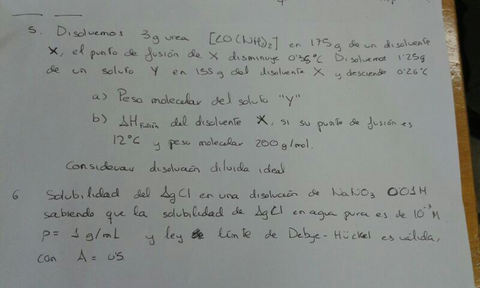 5. Disolvemos 3g urea [CO(NH)2] en 175g de un disolvente
X, el punto de fusión de X disminuye 0'36°C Disolvemos 1'25g
de un soluto Y en 155g del disolvente X y desciende 0'26°C
a) Peso molecular del soluto "Y"
b) ΔHfusión del disolvente X, si su punto de fusión es
12°C y peso molecular 200g/mol.
Considerar disolución diluida ideal
6 Solubilidad del AgCl en una disolución de NaNO3 0'01M
sabiendo que la solubilidad de AgCl en agua pura es de 10⁻⁵M
ρ= 1g/mL y ley límite de Debye-Hückel es válida,
con A= 0'5